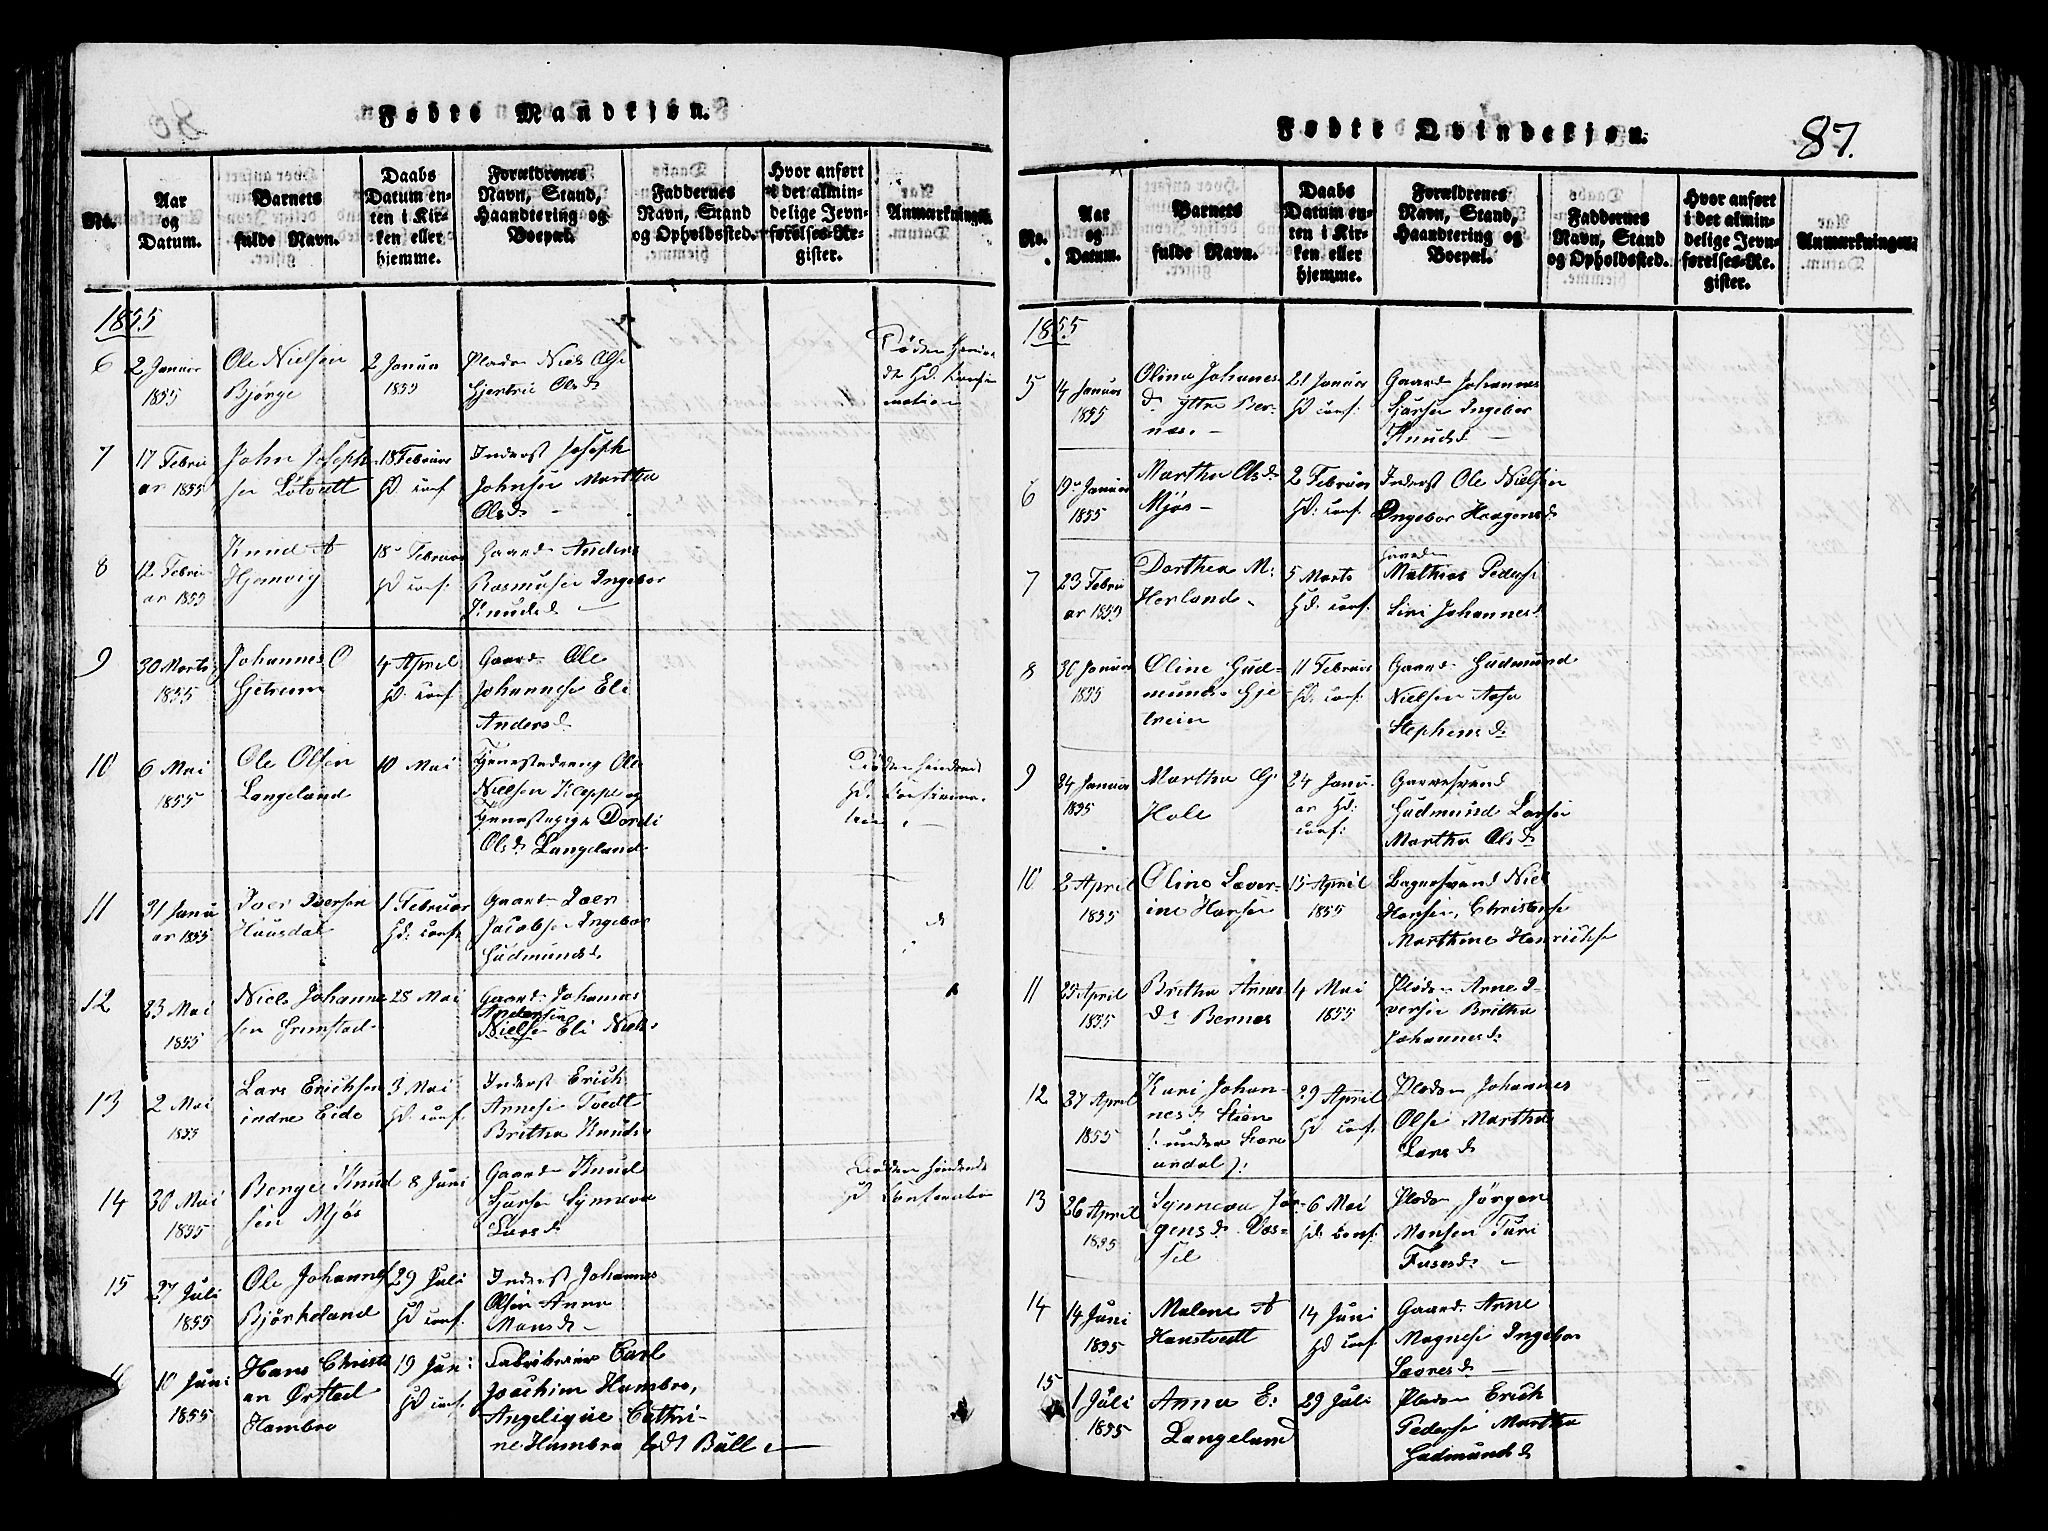 Fødte Mandkjøn.
No.
Aar
og
Datum.
Barnets
fulde Navn.
Daabs
Datum en-
ten i Kir-
ken eller
hjemme.
Forældrenes
Navn, Stand,
Haandtering og
Boepæl.
Faddernes
Navn, Stand
og Opholdssted.
Hvor anført
i det almin-
delige Jevn-
førelses-Re-
gister.
Anmærkninger.
1855
6
2 Januar
1855
Ole Nielsen
Bjørge
2 Januar
1855
Pladsm. Niels Olse
Gjertrie Olsd
7
17 Febru
ar 1855
John Joseph
sen Løtvedt
18 Februar
Hd. conf.
Inderst Joseph
Johnsen Martha
Olsd
8
12 Febru
ar 1855
Knud A
Hjemvig
18 Februar
Hd conf.
Gaardm. Anders
Rasmusen Ingebor
Knudsd. —
9
30 Marts
1855
Johannes O
Gjetrein
4 April
Hd. conf.
Gaardm. Ole
Johannesen Eli
Andersd.
10
6 Mai
1855
Ole Olsen
Langeland
10 Mai
Tjenestedreng Ole
Nielsen Kleppe og
Tjenestepige Dordi
Olsd. Langeland
11
31 Janu
ar 1855
Iver Iversen
Hausdal
1 Februar
Hd. conf.
Gaardm. Iver
Jacobsen Ingebor
Gudmundsd.
12
23 Mai
1855
Niels Johanne
sen Grimstad
28 Mai
Gaardm. Johannes
Andersen
Nielsen Eli Niels
13
2 Mai
1855
Lars Erichsen
indre Eide
3 Mai
Hd. conf.
Inderst Erich
Arnesen Tvedt
Britha Knuds
14
30 Mai
1855
Børge Knud
sen Mjøs
8 Juni
Gaardm. Knud
Sjursen Synneva
Larsd.
15
27 Juli
1855
Ole Johannes
Bjørkeland
29 Juli
Hd conf.
Inderst Johannes
Olsen Anna
Monsd. —
16
10 Juni
1855
Hans Christi
an Ørsted
Hambro
19 Juni
Hd conf.
Fabrikeier Carl
Joachim Hambro,
Angelique Cathri-
ne Hambro født Bull —
Fødte Qvindekjøn.
87.
No.
Aar
og
Datum.
Barnets
fulde Navn.
Daabs
Datum en-
ten i Kir-
ken eller
hjemme.
Forældrenes
Navn, Stand,
Haandtering og
Boepæl.
Faddernes
Navn, Stand
og Opholdssted.
Hvor anført
i det almin-
delige Jevn-
førelses-Re-
gister.
Anmærkninger.
1855
5
4 Januar
1855
Olina Johannes
d. ytre Ber-
nes. —
21 Januar
Hd conf.
Gaardm. Johannes
Sjursen Ingebor
Knudsd. —
6
19 Januar
1855
Martha Olsd.
Mjøs —
2 Februar
Hd. conf.
Inderst Ole Nielsen
Ingebor Haagensd
7
23 Febru
ar 1855
Dorthea M.
Herland.
5 Marts
Hd. conf.
Gaardm.
Mathias Peders
Siri Johannesd
8
30 Januar
1855
Oline Gud-
mundsd. Gje
trein
11 Februar
Hd. conf.
Gaardm. Gudmund
Nielsen Aasa
Stephensd.
9
24 Januar
1855
Martha G
Hole
24 Janu-
ar Hd.
conf.
Gudmund Larsen
Martha Olsd
10
2 April
1855
Oline Sever-
ine Hansen
15 April
1855
Niel
Hansen, Christense
Marthine Henrichse
11
25 April
1855
Britha Arnes
d. Bernes
4 Mai
1855
Pladsm. Arne I-
versen Britha
Johannesd.
12
27 April
1855
Kari Johan-
nesd. Steen
(: under Søre
andal ):
29 April
Hd conf.
Pladsm Johannes
Olse Martha
Larsd
13
26 April
1855
Synneva Jør-
gensd. Vas-
sel
6 Mai
Hd. conf.
Pladsm Jørgen
Monsen Turi
14
14 Juni
1855
Malene A
Hanstvedt
14 Juni
Hd conf
Gaardm. Arne
Magnese Ingebor
15
1 Juli
1855
Anna E.
Langeland
29 Juli
Pladsm Erich
Pederse Martha
Gudmundsd